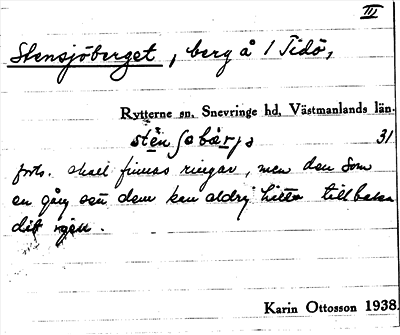 III
Stensjöberget, berg å 1 Tidö,
Rytterne sn. Snevringe hd. Västmanlands län.
31
forts. skall finnas ringar, men den som
en gång sett dem kan aldrig hitta tillbaka
dit igen.
Karin Ottosson 1938.